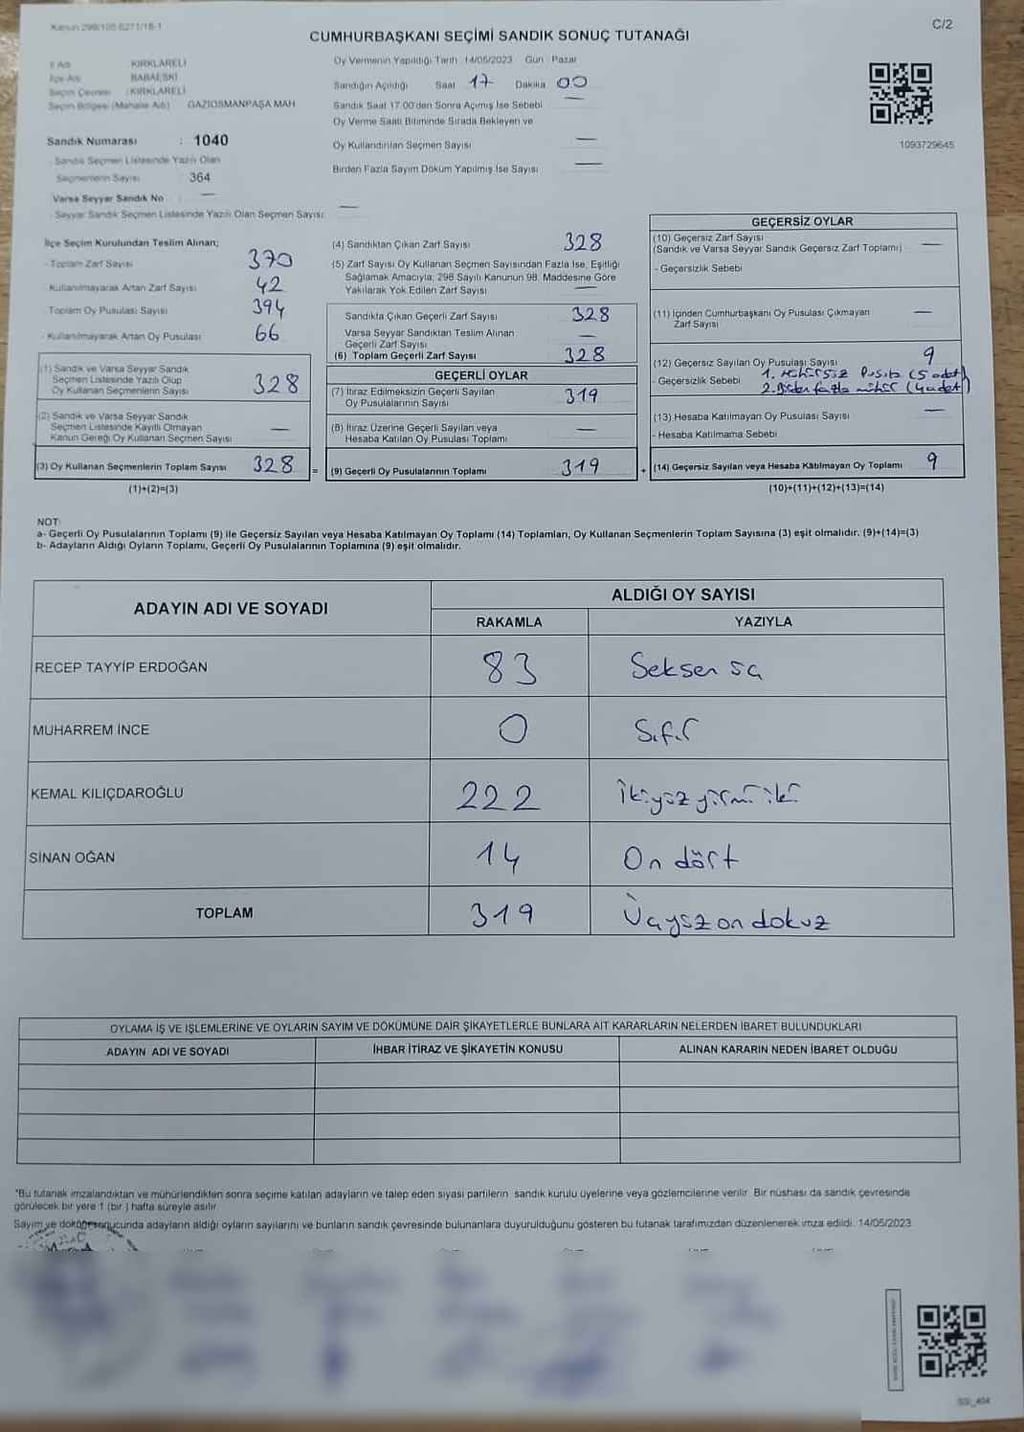 Kanun 298/105-6271/18-1
C/2
CUMHURBAŞKANI SEÇİMİ SANDIK SONUÇ TUTANAĞI
İl Adı KIRKLARELİ
İlçe Adı BABAESKİ
Seçim Çevresi : KIRKLARELİ
Seçim Bölgesi (Mahalle Adı) GAZİOSMANPAŞA MAH.
Sandık Numarası : 1040
Sandık Seçmen Listesinde Yazılı Olan
Seçmenlerin Sayısı 364
Varsa Seyyar Sandık No —
Seyyar Sandık Seçmen Listesinde Yazılı Olan Seçmen Sayısı —
Oy Vermenin Yapıldığı Tarih 14/05/2023 Gün Pazar
Sandığın Açıldığı Saat 17 Dakika 00
Sandık Saat 17.00'den Sonra Açılmış İse Sebebi —
Oy Verme Saati Bitiminde Sırada Bekleyen ve
Oy Kullandırılan Seçmen Sayısı —
Birden Fazla Sayım Döküm Yapılmış İse Sayısı —
1093729645
İlçe Seçim Kurulundan Teslim Alınan;
- Toplam Zarf Sayısı 370
- Kullanılmayarak Artan Zarf Sayısı 42
- Toplam Oy Pusulası Sayısı 394
- Kullanılmayarak Artan Oy Pusulası 66
(1) Sandık ve Varsa Seyyar Sandık
Seçmen Listesinde Yazılı Olup
Oy Kullanan Seçmenlerin Sayısı 328
(2) Sandık ve Varsa Seyyar Sandık
Seçmen Listesinde Kayıtlı Olmayan
Kanun Gereği Oy Kullanan Seçmen Sayısı —
(3) Oy Kullanan Seçmenlerin Toplam Sayısı 328 =
(1)+(2)=(3)
(4) Sandıktan Çıkan Zarf Sayısı 328
(5) Zarf Sayısı Oy Kullanan Seçmen Sayısından Fazla İse, Eşitliği
Sağlamak Amacıyla, 298 Sayılı Kanunun 98. Maddesine Göre
Yakılarak Yok Edilen Zarf Sayısı —
Sandıkta Çıkan Geçerli Zarf Sayısı 328
Varsa Seyyar Sandıktan Teslim Alınan
Geçerli Zarf Sayısı —
(6) Toplam Geçerli Zarf Sayısı 328
GEÇERLİ OYLAR
(7) İtiraz Edilmeksizin Geçerli Sayılan
Oy Pusulalarının Sayısı 319
(8) İtiraz Üzerine Geçerli Sayılan veya
Hesaba Katılan Oy Pusulası Toplamı —
(9) Geçerli Oy Pusulalarının Toplamı 319 +
GEÇERSİZ OYLAR
(10) Geçersiz Zarf Sayısı
(Sandık ve Varsa Seyyar Sandık Geçersiz Zarf Toplamı) —
- Geçersizlik Sebebi
(11) İçinden Cumhurbaşkanı Oy Pusulası Çıkmayan
Zarf Sayısı —
(12) Geçersiz Sayılan Oy Pusulası Sayısı 9
- Geçersizlik Sebebi 1. Mühürsüz Pusula (5 adet)
2. Birden fazla mühür (4 adet)
(13) Hesaba Katılmayan Oy Pusulası Sayısı —
- Hesaba Katılmama Sebebi
(14) Geçersiz Sayılan veya Hesaba Katılmayan Oy Toplamı 9
(10)+(11)+(12)+(13)=(14)
NOT:
a- Geçerli Oy Pusulalarının Toplamı (9) ile Geçersiz Sayılan veya Hesaba Katılmayan Oy Toplamı (14) Toplamları, Oy Kullanan Seçmenlerin Toplam Sayısına (3) eşit olmalıdır. (9)+(14)=(3)
b- Adayların Aldığı Oyların Toplamı, Geçerli Oy Pusulalarının Toplamına (9) eşit olmalıdır.
ADAYIN ADI VE SOYADI
ALDIĞI OY SAYISI
RAKAMLA YAZIYLA
RECEP TAYYİP ERDOĞAN 83 Seksen üç
MUHARREM İNCE 0 Sıfır
KEMAL KILIÇDAROĞLU 222 İkiyüz yirmi iki
SİNAN OĞAN 14 On dört
TOPLAM 319 Üçyüz on dokuz
OYLAMA İŞ VE İŞLEMLERİNE VE OYLARIN SAYIM VE DÖKÜMÜNE DAİR ŞİKAYETLERLE BUNLARA AİT KARARLARIN NELERDEN İBARET BULUNDUKLARI
ADAYIN ADI VE SOYADI İHBAR İTİRAZ VE ŞİKAYETİN KONUSU ALINAN KARARIN NEDEN İBARET OLDUĞU
*Bu tutanak imzalandıktan ve mühürlendikten sonra seçime katılan adayların ve talep eden siyasi partilerin sandık kurulu üyelerine veya gözlemcilerine verilir. Bir nüshası da sandık çevresinde
görülecek bir yere 1 (bir) hafta süreyle asılır.
Sayım ve döküm sonucunda adayların aldığı oyların sayılarını ve bunların sandık çevresinde bulunanlara duyurulduğunu gösteren bu tutanak tarafımızdan düzenlenerek imza edildi. 14/05/2023